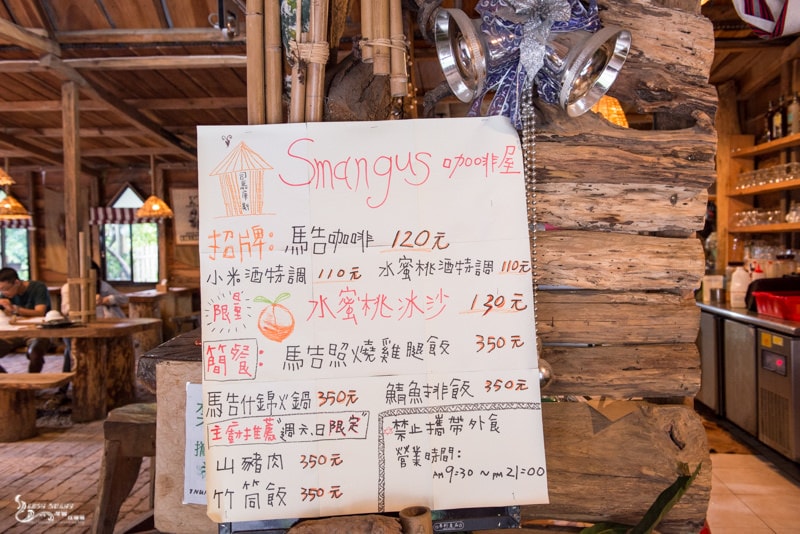 Smangus 咖啡屋
招牌: 馬告咖啡 120元
小米酒特調 110元 水蜜桃酒特調 110元
限量 水蜜桃冰沙 130元
簡餐: 馬告照燒雞腿飯 350元
馬告什錦火鍋 350元 鯖魚排飯 350元
主廚推薦 週六.日限定"
山豬肉 350元
竹筒飯 350元
禁止攜帶外食
營業時間:
AM 9:30～PM 21:00